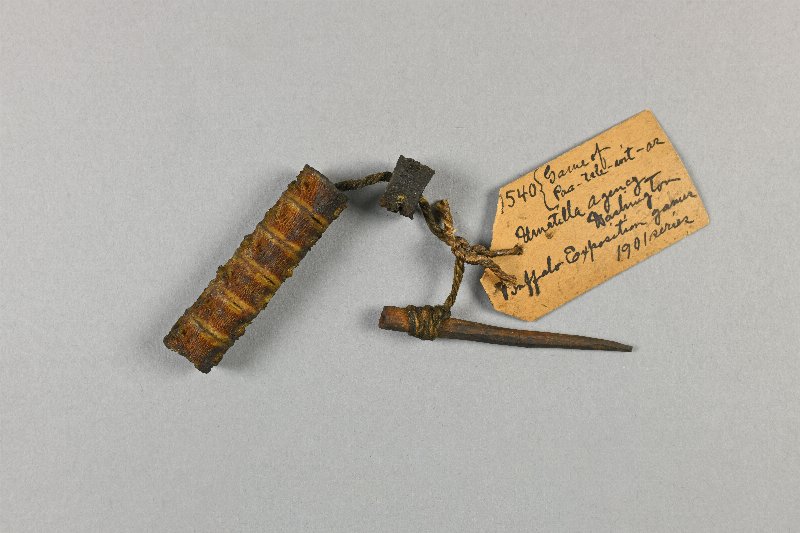 1540 { Game of
Pas-
Umatilla agency
Washington
Buffalo Exposition games
1901 series